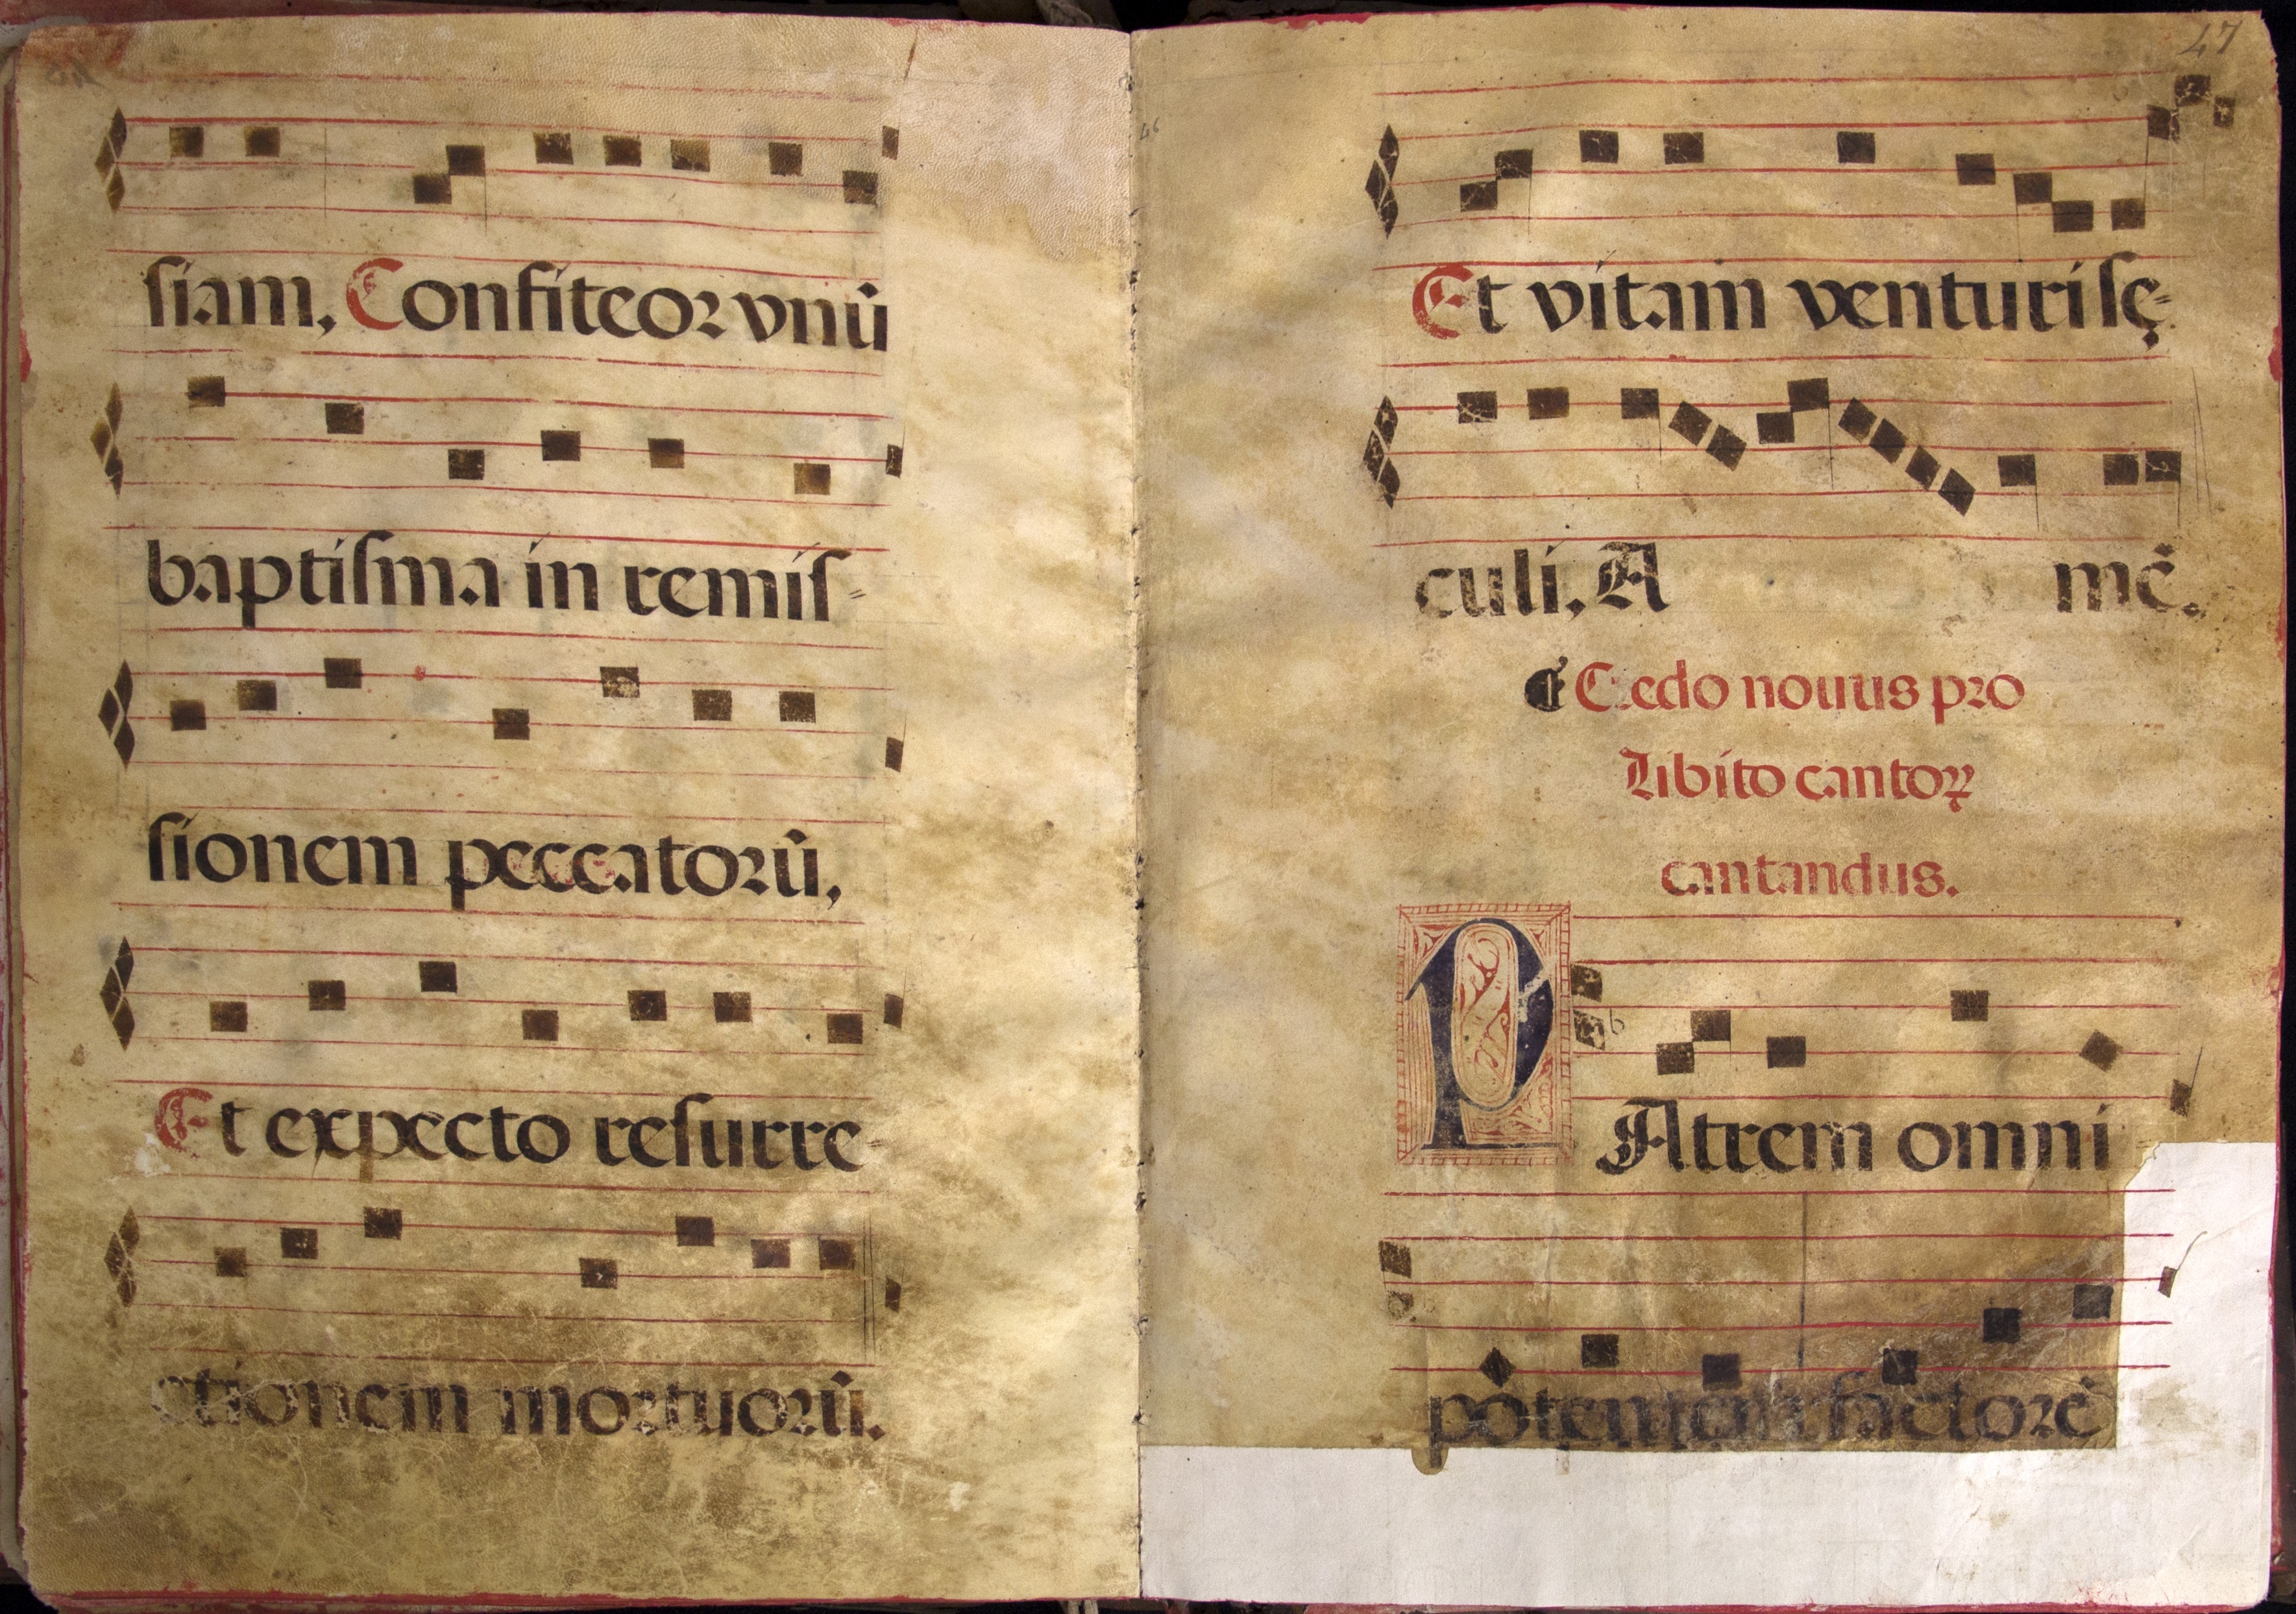 siam, Confiteor vnū
baptisma in remis=
sionem peccatorū,
Et expecto resurre-
ctionem mortuorū.
47
46
Et vitam venturi sę=
culi, A mē.
Credo nouus pro
Libito cantoꝝ
cantandus.
PAtrem omni
potentem factorē